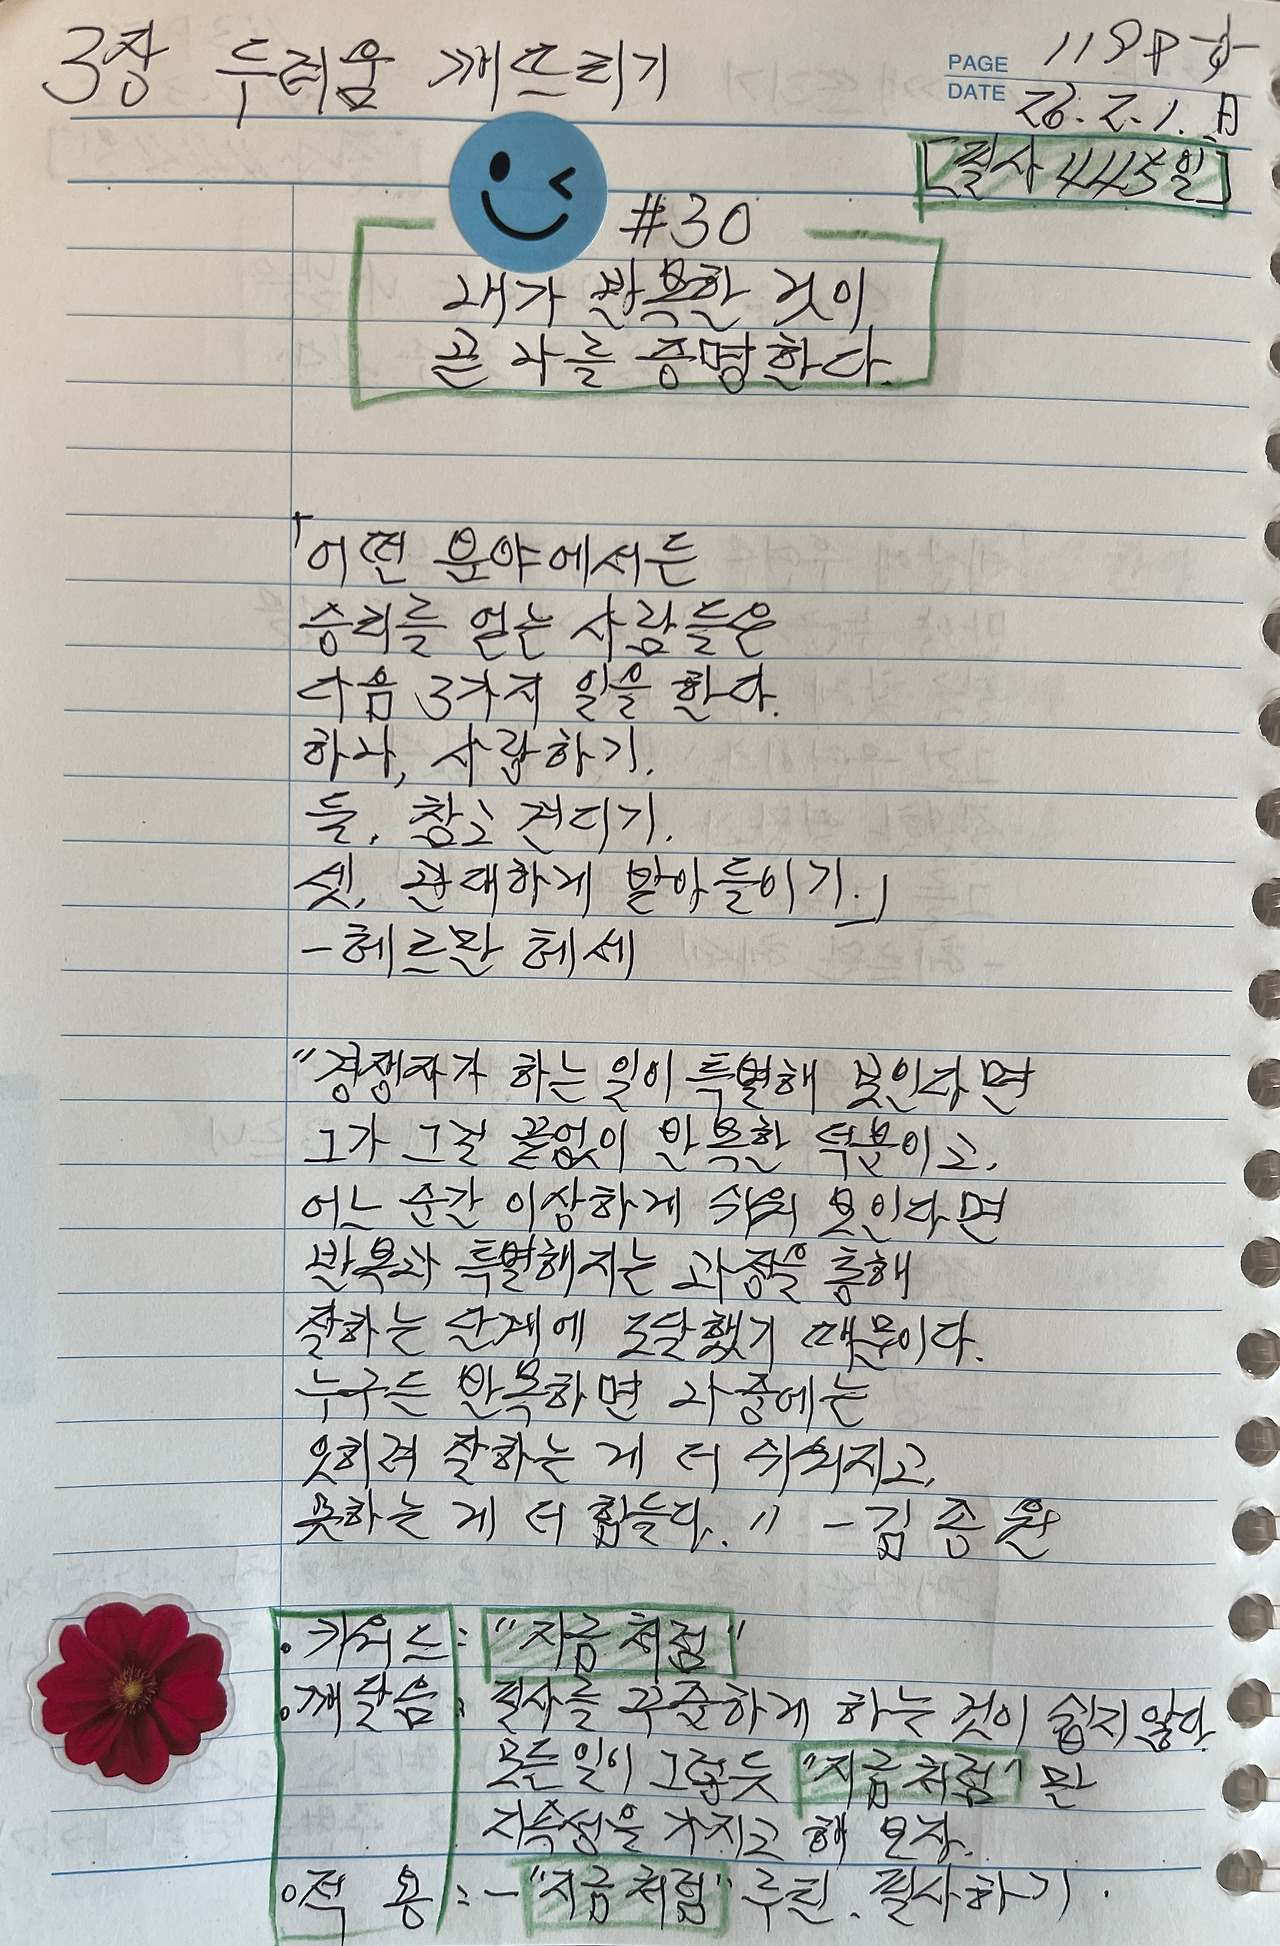 3장 두려움 깨뜨리기
PAGE 118P 하
DATE 26. 2. 1. 日
[필사 445일]
#30
내가 반복한 것이
곧 나를 증명한다.
「어떤 분야에서든
승리를 얻는 사람들은
다음 3가지 일을 한다.
하나, 사랑하기.
둘, 참고 견디기.
셋, 관대하게 받아들이기.」
-헤르만 헤세
"경쟁자가 하는 일이 특별해 보인다면
그가 그걸 끝없이 반복한 덕분이고,
어느 순간 이상하게 쉬워 보인다면
반복과 특별해지는 과정을 통해
잘하는 단계에 도달했기 때문이다.
누구든 반복하면 나중에는
오히려 잘하는 게 더 쉬워지고,
못하는 게 더 힘들다." -김종원
• 키워드 : "지금처럼"
• 깨달음 : 필사를 꾸준하게 하는 것이 쉽지않다
모든일이 그렇듯 "지금처럼"만
지속성을 가지고 해 보자.
•적 용 : - "지금처럼" 루틴. 필사하기.